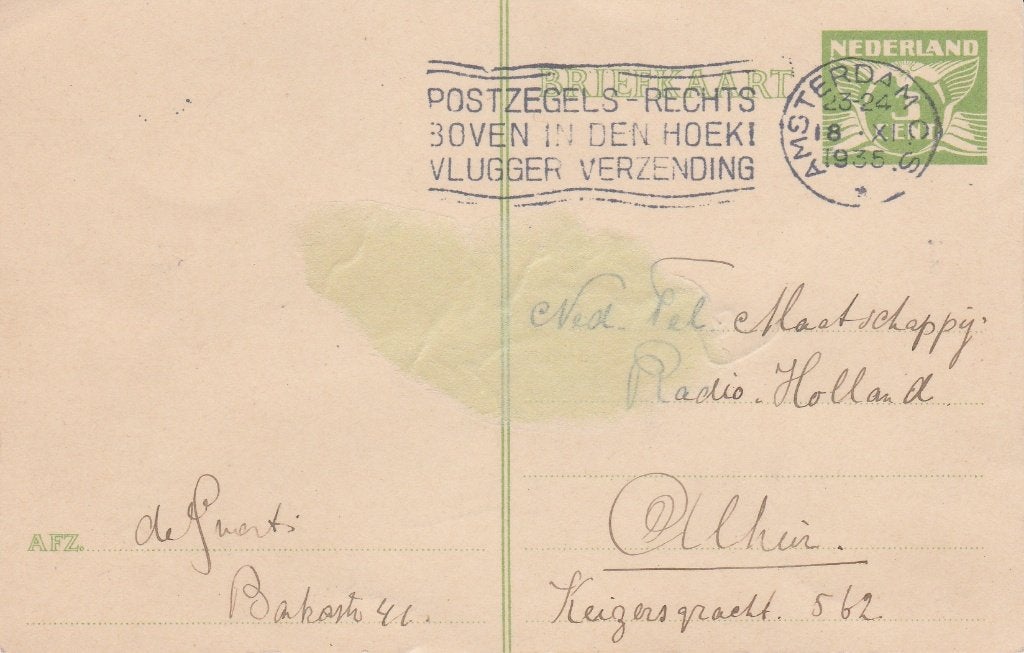 NEDERLAND
BRIEFKAART
AMSTERDAM C.S.
23-24
18 · XI
1935
POSTZEGELS-RECHTS
BOVEN IN DEN HOEK!
VLUGGER VERZENDING
Ned. Tel. Maatschappij.
Radio-Holland
Alhier.
Keizersgracht. 562
AFZ. de
41.